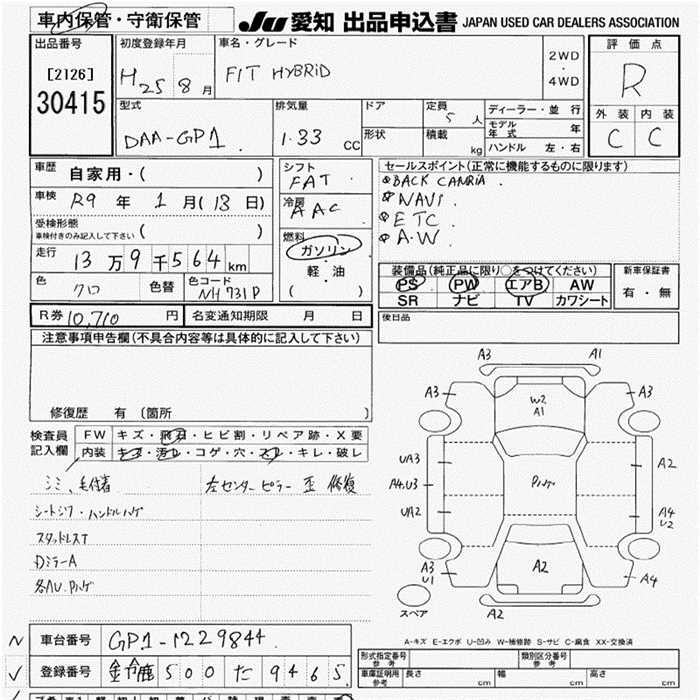 車内保管・守衛保管 JU 愛知 出品申込書 JAPAN USED CAR DEALERS ASSOCIATION
出品番号 初度登録年月 車名・グレード 評価点
[2126] H25 8月 FIT HYBRID 2WD・4WD R
30415
型式 排気量 ドア 定員 5人 ディーラー・並 行 外装 内装
DAA-GP1 1.33 CC 形状 積載 kg モデル年式 年 C C
ハンドル 左・右
車歴 自家用・( ) シフト FAT セールスポイント(正常に機能するものに限ります)
車検 R9年 1月(13日) 冷房 AAC BACK CAMRIA.
NAVI.
受検形態 ( ) ETC.
車検付きのみ記入して下さい 燃料 A.W.
走行 13万9千564km ガソリン・軽・油 ( )
装備品(純正品に限り○をつけてください) 新車保証書
色 クロ 色替 色コード NH731P PS PW エアB AW 有・無
SR ナビ TV カワシート
R券 10,710円 名変通知期限 月 日 後日品
注意事項申告欄(不具合内容等は具体的に記入して下さい)
修復歴 有 (箇所 )
検査員記入欄 FW キズ・飛石・ヒビ割・リペア跡・X要
内装 キズ・汚レ・コゲ・穴・スレ・キレ・破レ
シミ、毛付着 左センターピラー 歪 修復
シートシワ・ハンドルハゲ
スタッドレスT
DミラーA
各AU.Pハゲ
A3 A1
A3 W2 A1 A3
UA3 A2
A4.U3 Pハゲ
UA2 A4 U2
A3 U1 A2 A4
スペア A2
A-キズ E-エクボ U-凹み W-補修跡 S-サビ C-腐食 XX-交換済
車台番号 GP1-1229844
登録番号 鈴鹿 500 た 9465
形式指定番号 参考 類別区分番号 参考
車庫証明用 参考 長さ cm 幅 cm 高さ cm